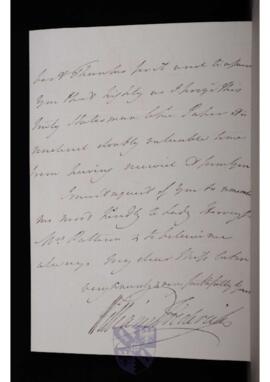 best Thanks for it and to assure
You that highly as I prize this
truly Statesman like Paper it is
rendered doubly valuable to me
from having received it from You
I must request of You to remember
me most kindly to Lady
Mrs Patterson & to believe me
always My dear Miss Caton
very sincerely & very faithfully Yours
William Frederick